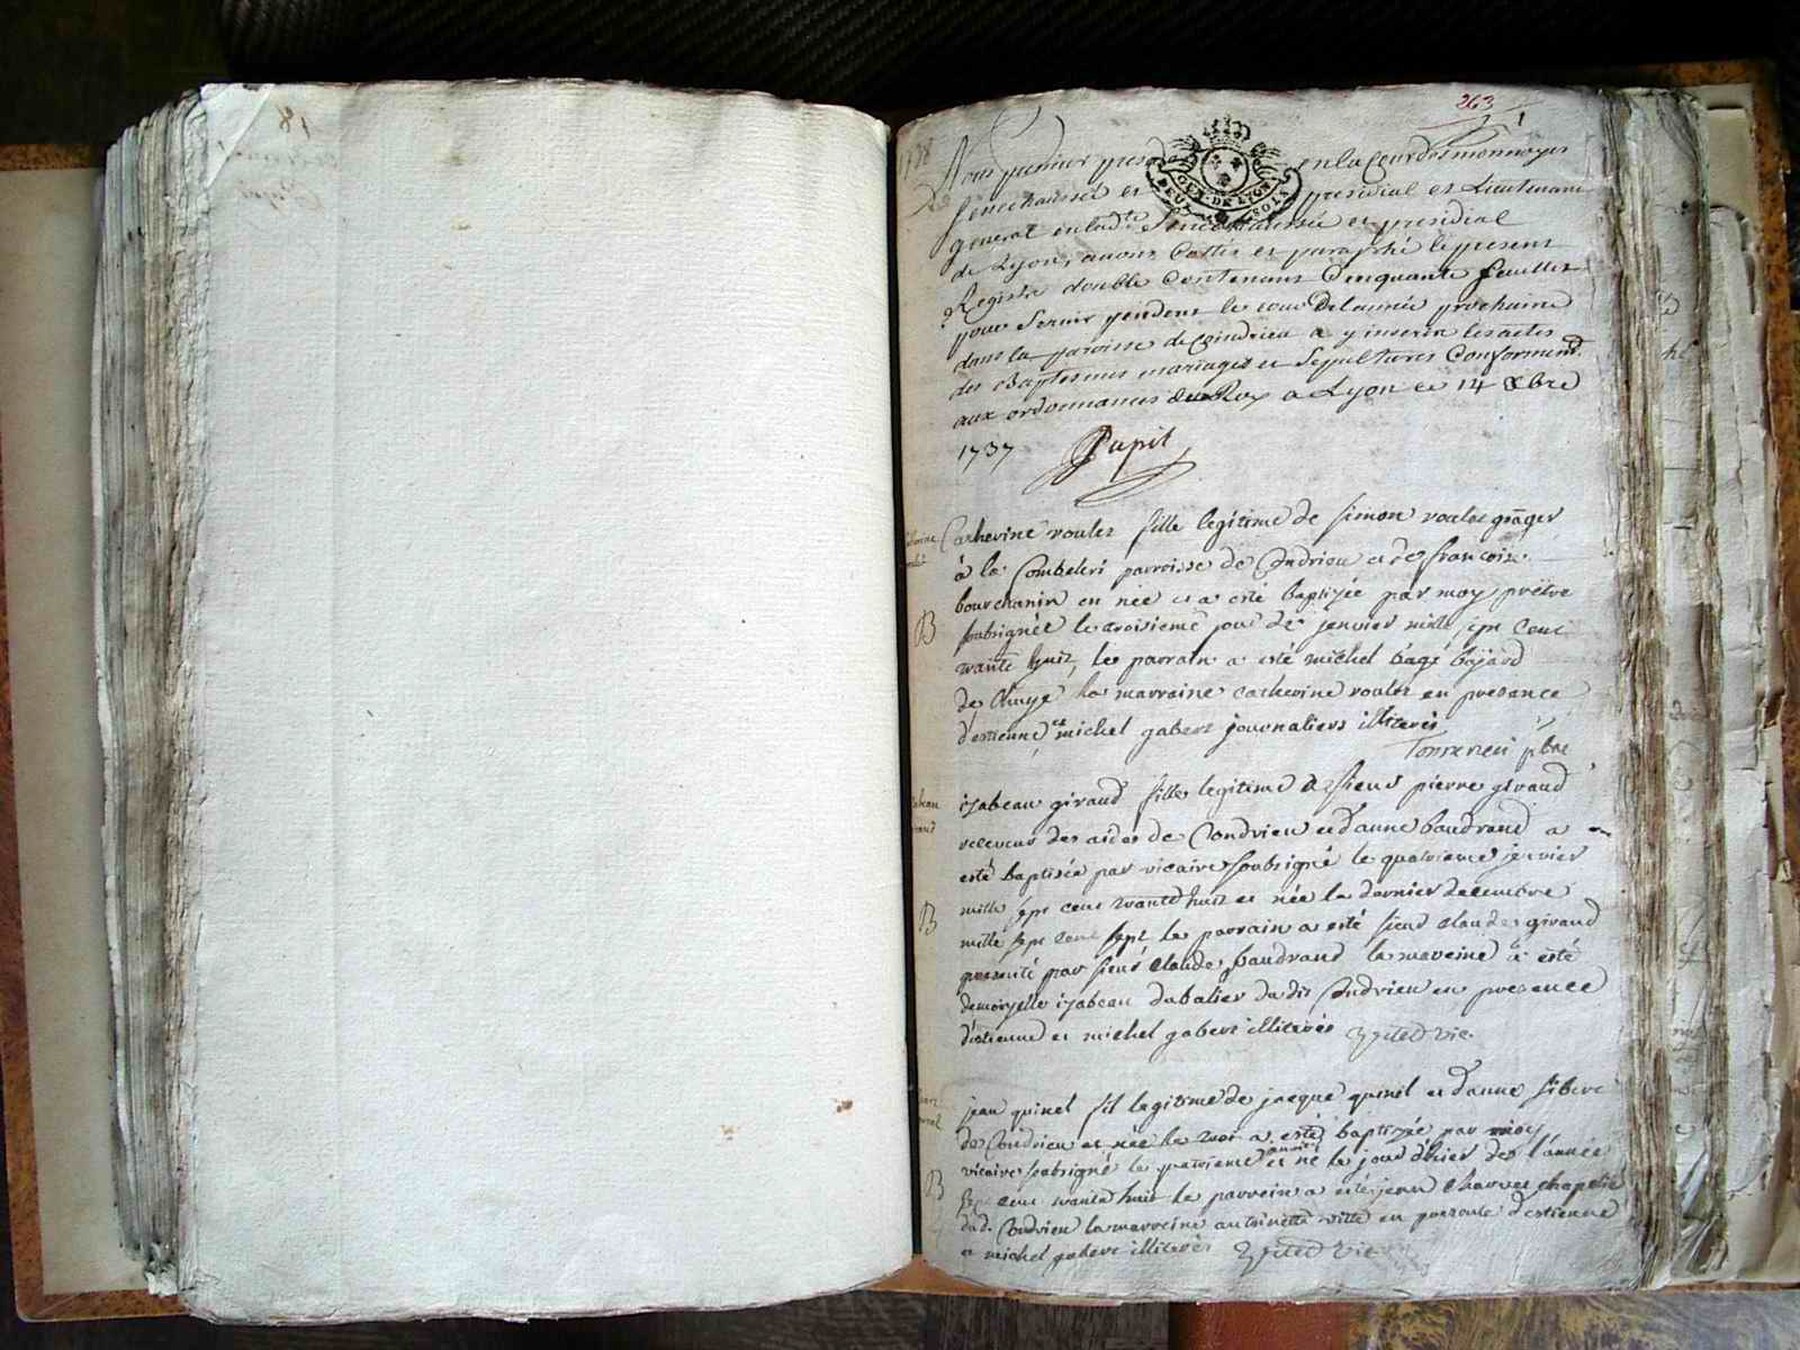 263
1
1738
Nous premier president en la Cour des monnoyes
Senechaussée et presidial et Lieutenant
GEN. DE LYON
DEUX SOLS
general en lad.te Senechaussée et presidial
de Lyon, avons Cottés et paraphé le present
Registre double Contenant Cinquante feuillets
pour Servir pendant le cour De l'année prochaine
dans la paroisse de Coindrieu a y inserer les actes
des Baptesmes mariages et Sepultures Conformem.t
aux ordonnances du Roy a Lyon ce 14 Xbre
1737 Pupil
Catherine voulet fille legitime de simon voulet
à la parroisse de Condrieu et de francoise
bourchanin en née et a esté baptizée par moy prêtre
soubsignée le troisieme jour de janvier mille sept cent
trante huit, le parrain a esté michel
de la marraine catherine voulet en presance
d'estienne et michel gabert journaliers illiterés
ptre
B
izabeau giraud fille legitime de sieur pierre giraud
receveur des aides de Condrieu et d'anne baudrand a
esté baptisée par vicaire soubsigné le quatrieme janvier
mille sept cent trante huit et née le dernier decembre
mille sept cent sept le parrain a esté sieur claude giraud
presenté par sieur claude baudrand la mareine a esté
demoizelle izabeau dabalier dudit Condrieu en presence
d'estienne et michel gabert illiterés vic.
B
jean quinel fil legitime de jacque quinel et d'anne
de Condrieu et née le a esté baptizée par moy
vicaire soubsigné le quatrieme janvier et né le jour d'hier de l'année
sept cent trante huit le parrein a esté jean
dud. Condrieu la marreine antoinette en presence d'estienne
et michel gabert illiterés vic
B